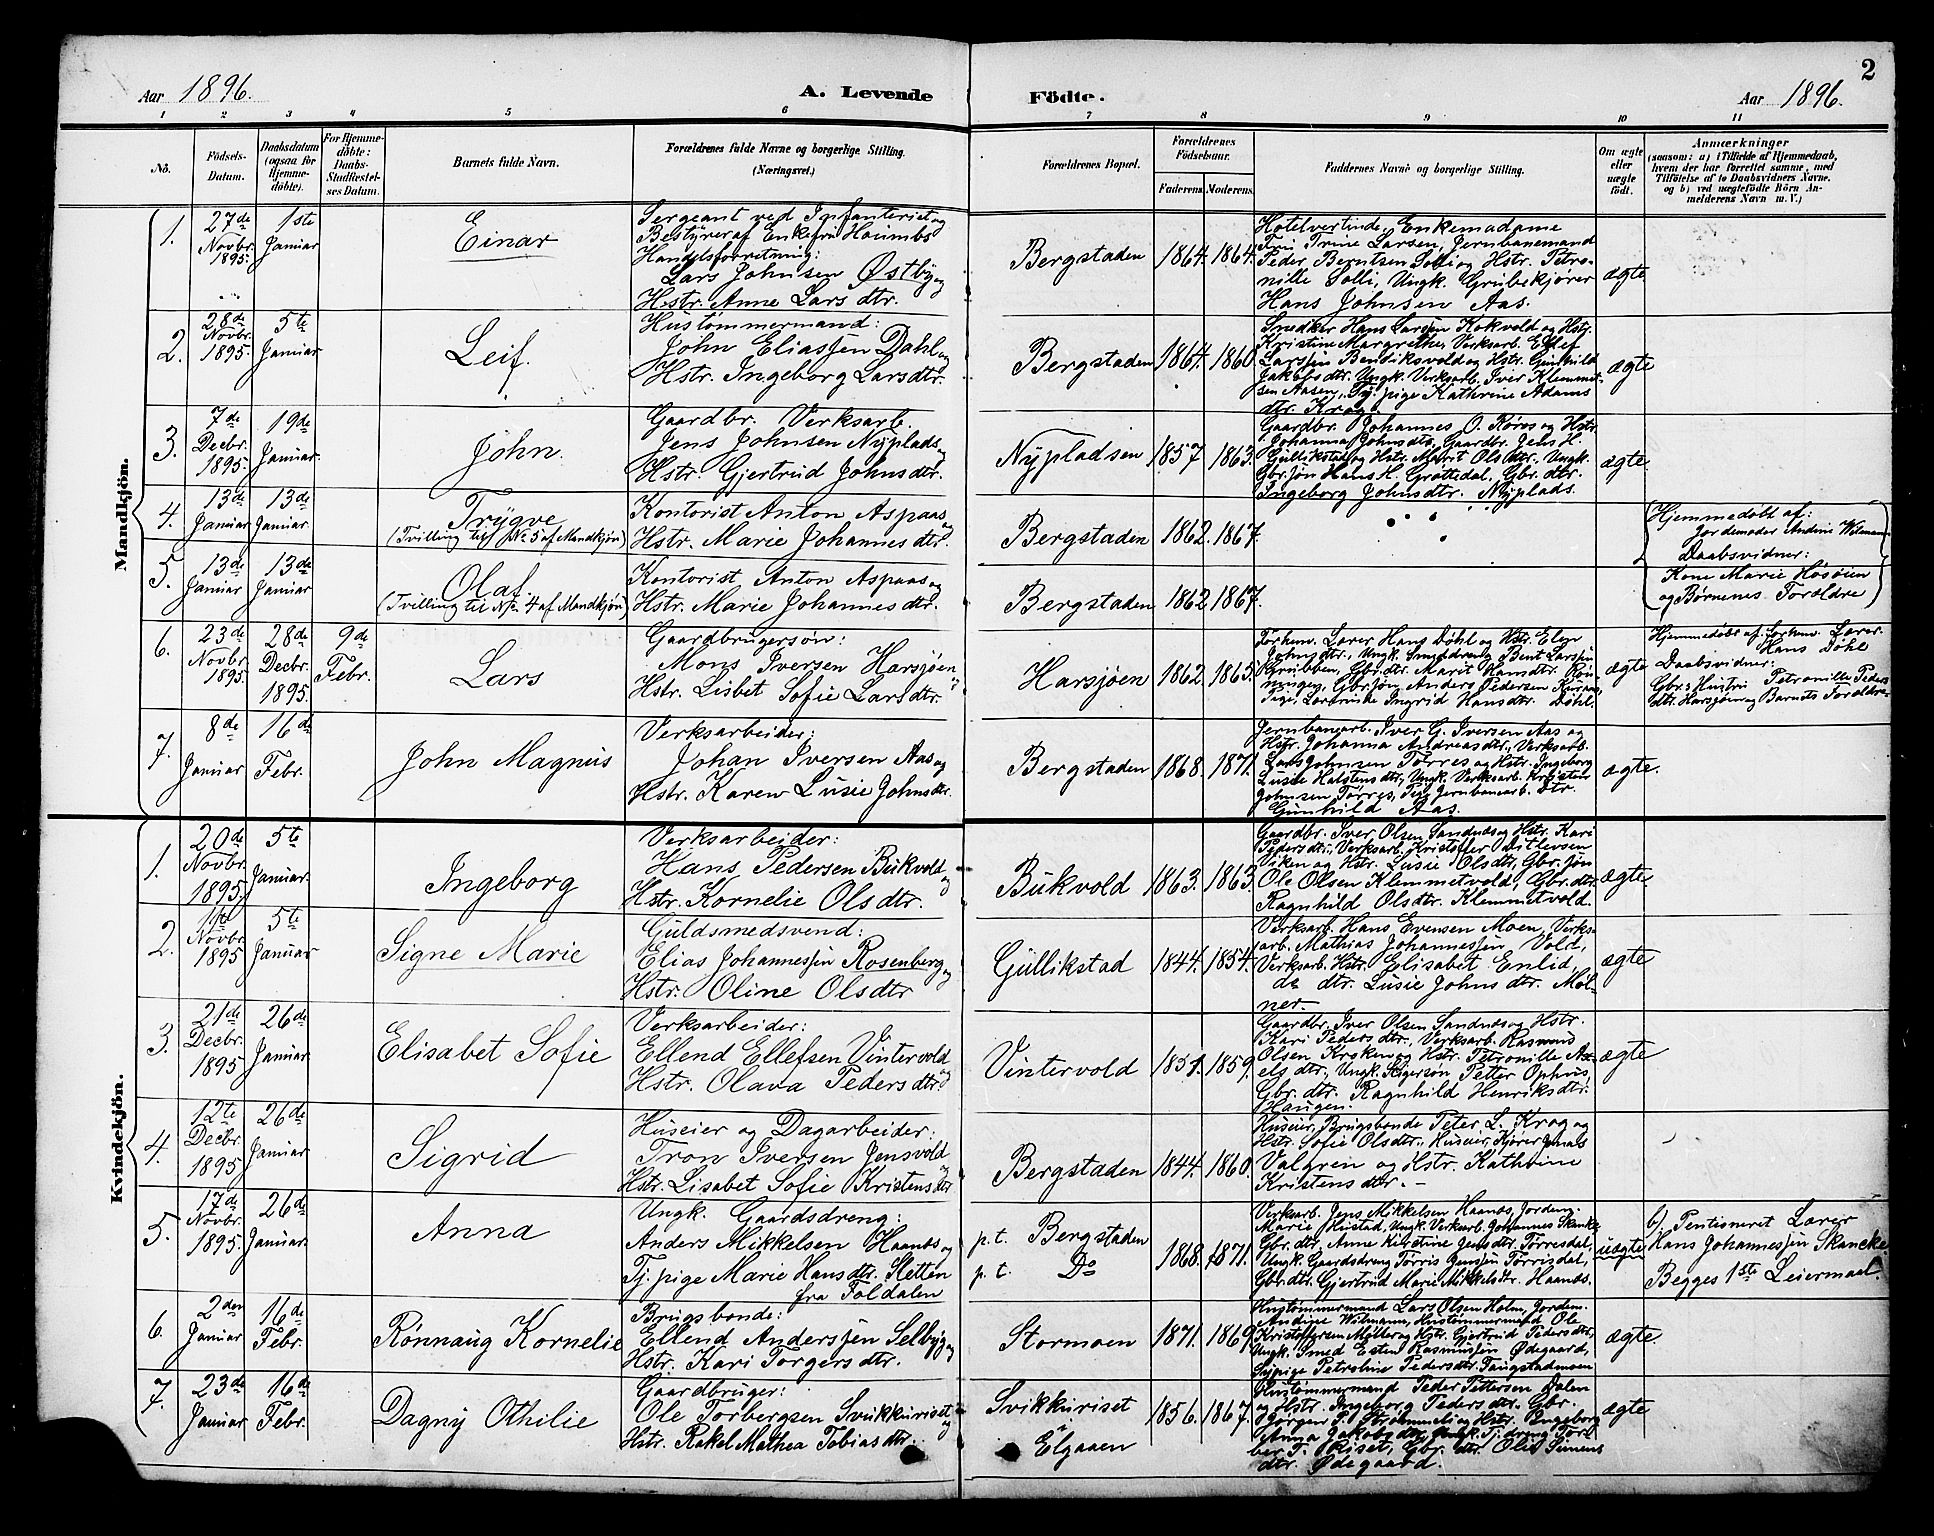 2
Aar 1896. A. Levende Födte. Aar 1896.
1 2 3 4 5 6 7 8 9 10 11
No.
Födsels-
Datum.
Daabsdatum
(ogsaa for
Hjemme-
döbte).
For Hjemme-
döbte:
Daabs-
Stadfæstel-
ses Datum.
Barnets fulde Navn.
Forældrenes fulde Navne og borgerlige Stilling.
(Næringsvei.)
Forældrenes Bopæl.
Forældrenes
Födselsaar.
Faderens. Moderens.
Faddernes Navne og borgerlige Stilling.
Om ægte
eller
uægte
født.
Anmærkninger
(saasom: a) i Tilfælde af Hjemmedaab,
hvem der har forrettet samme, med
Tilföielse af to Daabsvidners Navne.
og b) ved uægtefödte Börn An-
melderens Navn m. V.)
Mandkjön.
1.
27de
Novbr.
1895.
1ste
Januar
Einar
Sergeant ved Infanteriet og
Bestyrer af Enkefru
Handelsforretning:
Lars Johnsen Østby og
Hstr. Anne Larsdtr.
Bergstaden
1864. 1864.
Hotelvertinde, Enkemadame
Fru Trine Larsen, Jernbanemand
Peder Berntsen Solli og Hstr. Petro-
nille Solli, Ungk. Grubekjører
Hans Johnsen Aas.
ægte
2.
28de
Novbr.
1895.
5te
Januar
Leif.
Hustømmermand:
John Eliassen Dahl og
Hstr. Ingeborg Larsdtr.
Bergstaden
1864. 1860.
Snedker Hans Larsen Kokvold og Hstr.
Kristine Margrethe, Verksarb. Ellef
Larssen Bendiksvold og Hstr. Gunhild
Jakobsdtr. Ungk. Verksarb. Iver Klemmet-
sen Aasen, Sypige Kathrine Adams
dtr. Krog.
ægte
3.
7de
Decbr.
1895.
19de
Januar
John.
Gaardbr. Verksarb.
Jens Johnsen Nyplads og
Hstr. Gjertrud Johnsdtr.
Nypladsen
1857 1863.
Gaardbr. Johannes O. Røros og Hstr.
Johanna Johnsdtr. Gaardbr. Jens H.
Gullikstad og Hstr. Marit Olsdtr. Ungk.
Gbr.søn Hans H. Grøttedal, Gbr. dtr.
Ingeborg Johnsdtr. Nyplads.
ægte
4.
13de
Januar
13de
Januar
Trygve
(Tvilling til No 5 af Mandkjøn)
Kontorist Anton Aspaas og
Hstr. Marie Johannesdtr.
Bergstaden
1862. 1867.
(Hjemmedøbt af:
Jordemoder Andine Wilmann
Daabsvidner:
Kone Marie Høsøien
og Børnenes Forældre)
5.
13de
Januar
13de
Januar
Olaf.
(Tvilling til No 4 af Mandkjøn)
Kontorist Anton Aspaas og
Hstr. Marie Johannesdtr.
Bergstaden
1862 1867.
6.
23de
Novbr.
1895.
28de
Decbr.
1895
9de
Febr.
Lars
Gaardbrugersøn:
Mons Iversen Harsjøen og
Hstr. Lisbet Sofie Larsdtr.
Harsjøen
1862 1865.
Forhen. Lærer Hans Døhl og Hstr. Elen
Johnsdtr., Ungk. Bent Larssen
Grubben, Gbr.dtr. Marit Hansdtr. Røn-
ningen, Gbr.søn Anders Pedersen
Pige, Ingrid Hansdtr. Døhl.
ægte
Hjemmedøbt af forhen. Lærer
Hans Døhl
Daabsvidner:
Gbr: Hustru Petronille Peders
dtr. Harsjøen og Barnets Forældre.
7.
8de
Januar
16de
Febr.
John Magnus
Verksarbeider:
Johan Iversen Aas og
Hstr. Karen Lusie Johnsdtr.
Bergstaden
1868. 1871.
Jernbanearb. Iver G. Iversen Aas og
Hstr. Johanna Andreasdtr., Verksarb.
Lars Johnsen Tørres og Hstr. Ingeborg
Lusie Halstensdtr, Ungk. Verksarb. Kristen
Johnsen Tørres, Pige Jernbanearb. dtr.
Gunhild Aas.
ægte.
Kvindekjön.
1.
20de
Novbr.
1895.
5te
Januar
Ingeborg
Verksarbeider:
Hans Pedersen Bukvold og
Hstr. Kornelie Olsdtr.
Bukvold
1863. 1863.
Gaardbr. Iver Olsen Sandnes og Hstr. Kari
Pedersdtr., Verksarb. Kristoffer Ditlevsen
Viken og Hstr. Lusie Olsdtr, Gbr. søn
Ole Olsen Klemmetvold, Gbr. dtr.
Ragnhild Olsdtr. Klemmetvold.
ægte
2.
1ste
Novbr.
1895
5te
Januar
Signe Marie
Guldsmedsvend:
Elias Johannessen Rosenberg og
Hstr. Oline Olsdtr
Gullikstad
1844. 1854.
Verksarb. Hans Evensen Moen, Verks-
arb. Mathias Johannessen Vold,
Verksarb. Hstr. Elisabet Enlid,
do dtr. Lusie Johnsdtr. Møl-
ner.
ægte
3.
21de
Decbr.
1895
26de
Januar
Elisabet Sofie
Verksarbeider:
Ellend Ellefsen Vintervold og
Hstr. Olava Pedersdtr
Vintervold
1851. 1859.
Gaardbr. Iver Olsen Sandnes og Hstr.
Kari Pedersdtr., Verksarb. Rasmus
Olsen Krokm og Hstr. Petronille Ax-
elsdtr., Ungk. Petter Ophus,
Gbr. dtr. Ragnhild Henriksdtr.
Haugen.
ægte
4.
12te
Decbr.
1895
26de
Januar
Sigrid
Huseier og Dagarbeider:
Tron Iversen Jensvold og
Hstr. Lisabet Sofie Kristensdtr
Bergstaden
1844. 1860.
Huseier, Brugsbonde Peter L. Krog og
Hstr. Sofie Olsdtr., Huseier, Kjører
Valgren og Hstr. Kathrine
Kristensdtr.
5.
17de
Novbr.
1895.
26de
Januar
Anna
Ungk. Gaardsdreng:
Anders Mikkelsen Haanes og
Tj. pige Marie Hansdtr. Sletten
fra Foldalen
p.t. Bergstaden
p.t. Do
1868. 1871.
Verksarb. Jens Mikkelsen Haanes, Jordem.
Marie Kustad, Ungk. Verksarb. Johannes Skanke,
Gbr. dtr. Anne Kirstine Jensdtr. Tørresdal,
Ungk. Gaardsdreng Tørris Jenssen Tørrisdal,
Gbr.dtr. Gjertrud Marie Mikkelsdtr. Haanes.
uægte
b). Pentioneret Lærer
Hans Johannessen Skancke
Begges 1ste Leiermaal.
6.
2den
Januar
16de
Febr.
Rønnaug Kornelie
Brugsbonde:
Ellend Anderssen Selbyg og
Hstr. Kari Torgersdtr.
Stormoen
1871. 1869.
Hustømmermand Lars Olsen Holm, Jordem.
Andine Wilmann, Hustømmermand Ole
Kristoffersen Møller og Hstr. Gjertrud Pedersdtr,
Ungk. Smed Esten Rasmussen Ødegaard,
Sypige Petroline Pedersdtr. Taugstadmoen
ægte.
7.
23de
Januar
16de
Febr.
Dagny Othilie
Gaardbruger:
Ole Torbergsen Svukkuriset og
Hstr. Rakel Mathea Tobiasdtr.
Svikkuriset
Elgaaen
1856. 1867.
Hustømmermand Peder Pettersen Dalen
og Hstr. Ingeborg Pedersdtr. Gbr.
Jørgen P. og Hstr. Ingeborg
Anna Jakobsdtr, Ungk. Tj.dreng Tor-
ber T. Riset, Gbr. dtr. Olie Simens
dtr. Ødegaard.
ægte